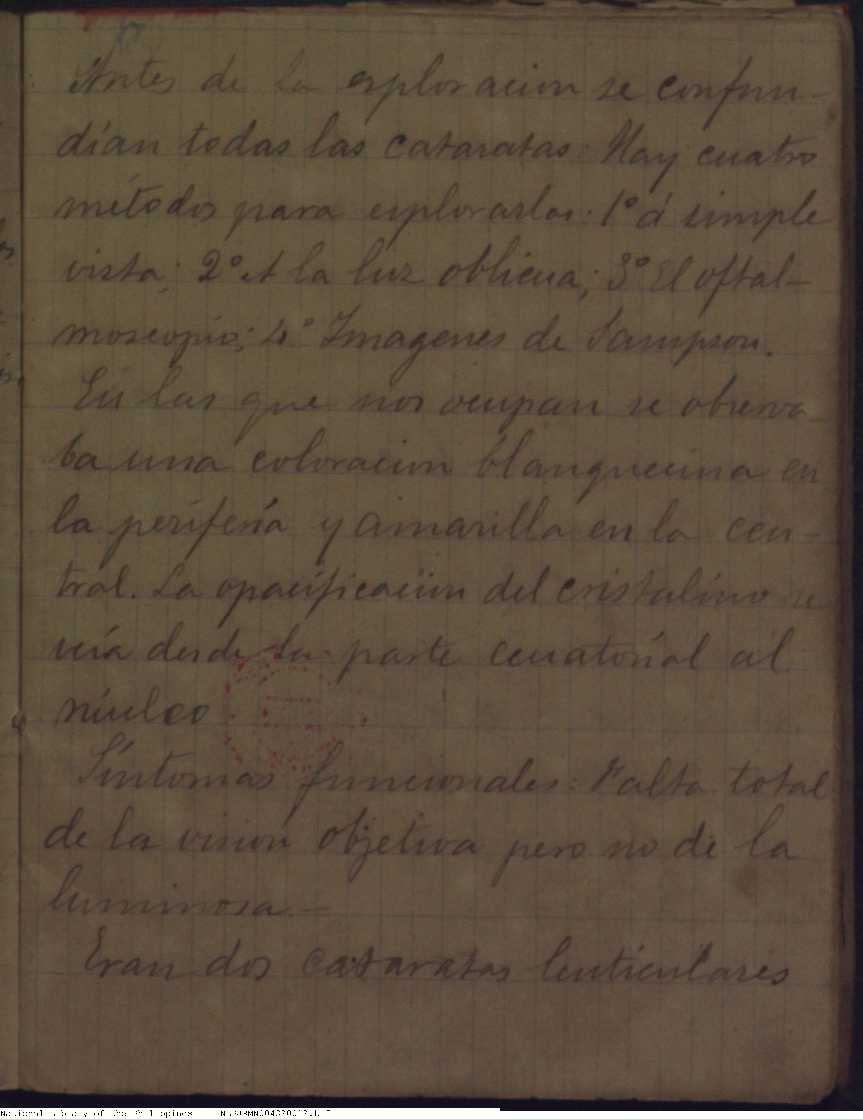 Antes de la esploracion se confun-
dían todas las cataratas: Hay cuatro
métodos para esplorarlas: 1º á simple
vista; 2º A la luz oblicua; 3º El oftal-
moscopio; 4º Imagenes de Sampson.
En las que nos ocupan se observa
ba una coloracion blanquecina en
la periferia y amarilla en la cen-
tral. La opacificacion del cristalino se
veía desde la parte ecuatorial al
núcleo
Síntomas funcionales: Falta total
de la vision objetiva pero no de la
luminosa.—
Eran dos cataratas lenticulares
National Library of the Philippines